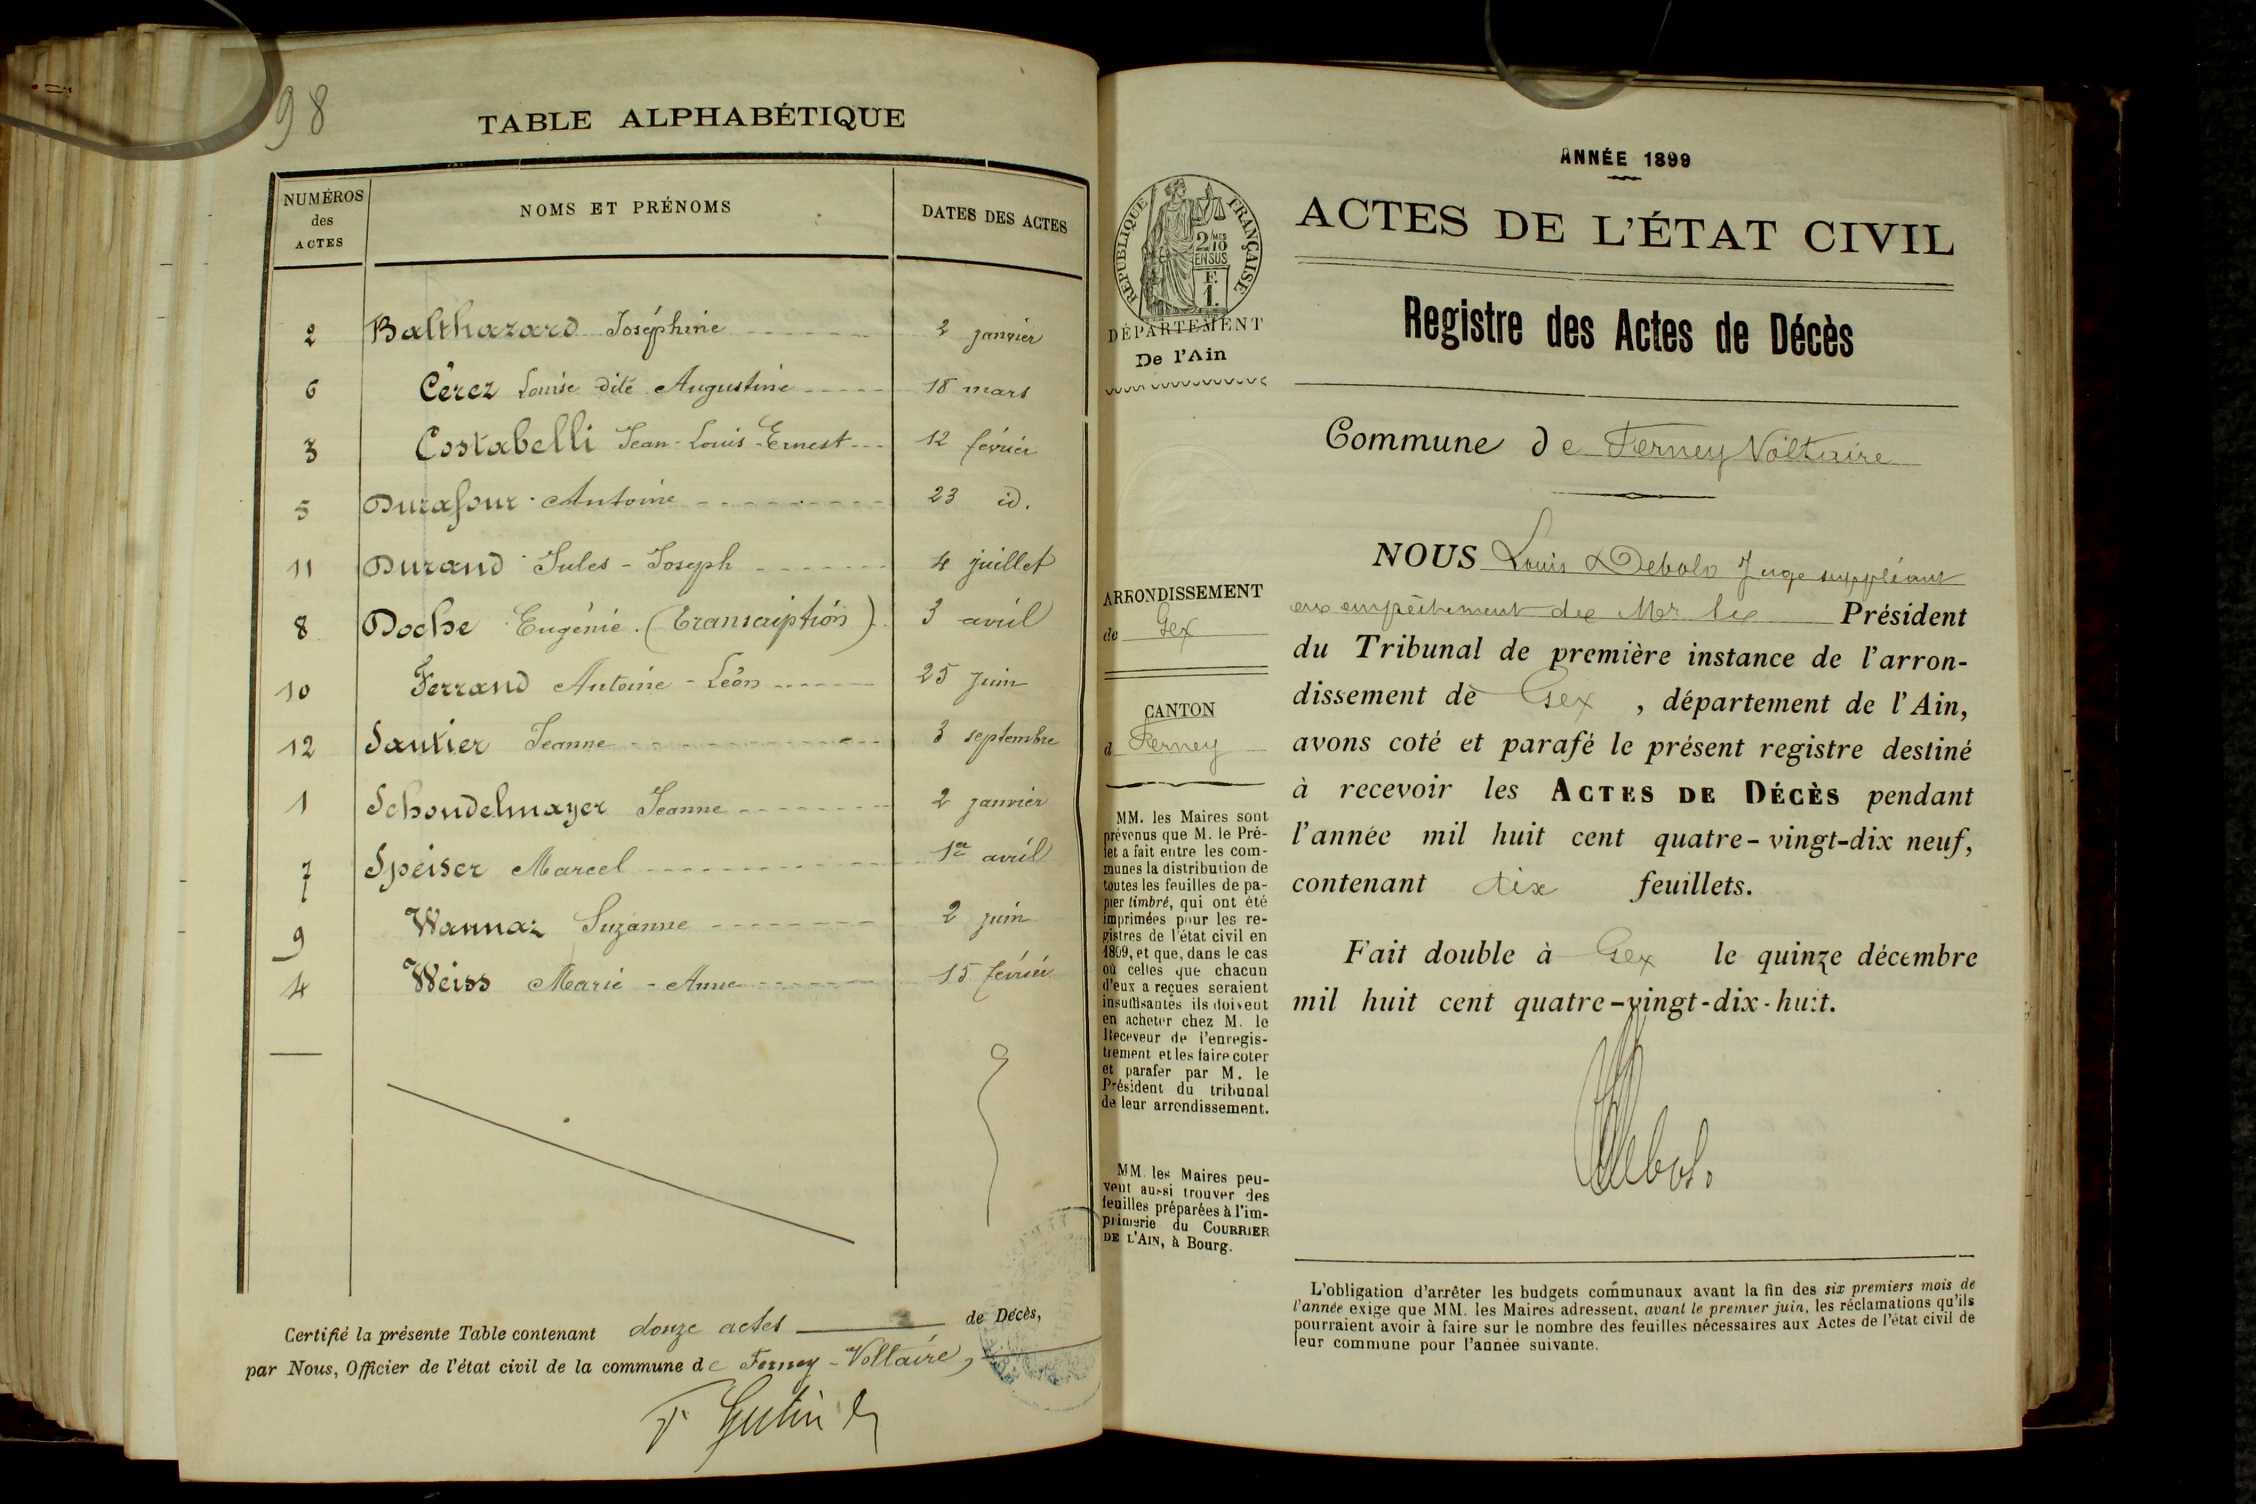 98
TABLE ALPHABÉTIQUE
NUMÉROS des ACTES
NOMS ET PRÉNOMS
DATES DES ACTES
2 Balthazard Joséphine 2 janvier
6 Cérez Louise dite Augustine 18 mars
3 Costabelli Jean-Louis-Ernest 12 février
5 Durafour Antoine 23 id.
11 Durand Jules-Joseph 4 juillet
8 Doche Eugénie. (Transcription) 3 avril
10 Ferrand Antoine-Léon 25 juin
12 Sautier Jeanne 3 septembre
1 Schoudelmayer Jeanne 2 janvier
7 Speiser Marcel 1er avril
9 Wannaz Suzanne 2 juin
4 Weiss Marie-Anne 15 février
Certifié la présente Table contenant douze actes de Décès,
par Nous, Officier de l'état civil de la commune de Ferney-Voltaire,
RÉPUBLIQUE FRANÇAISE
2/10 MES
EN SUS
F.
1.
DÉPARTEMENT
De l'Ain
ARRONDISSEMENT
de Gex
CANTON
d Ferney
MM. les Maires sont
prévenus que M. le Pré-
fet a fait entre les com-
munes la distribution de
toutes les feuilles de pa-
pier timbré, qui ont été
imprimées pour les re-
gistres de l'état civil en
1899, et que, dans le cas
où celles que chacun
d'eux a reçues seraient
insuffisantes ils doivent
en acheter chez M. le
Receveur de l'enregis-
trement et les faire coter
et parafer par M. le
Président du tribunal
de leur arrondissement.
MM. les Maires peu-
vent aussi trouver des
feuilles préparées à l'im-
primerie du COURRIER
DE L'AIN, à Bourg.
ANNÉE 1899
ACTES DE L'ÉTAT CIVIL
Registre des Actes de Décès
Commune de Ferney Voltaire
NOUS Louis Debolo Juge suppléant
en empêchement de Mr le Président
du Tribunal de première instance de l'arron-
dissement de Gex, département de l'Ain,
avons coté et parafé le présent registre destiné
à recevoir les ACTES DE DÉCÈS pendant
l'année mil huit cent quatre-vingt-dix neuf,
contenant dix feuillets.
Fait double à Gex le quinze décembre
mil huit cent quatre-vingt-dix-huit.
L'obligation d'arrêter les budgets communaux avant la fin des six premiers mois de
l'année exige que MM. les Maires adressent, avant le premier juin, les réclamations qu'ils
pourraient avoir à faire sur le nombre des feuilles nécessaires aux Actes de l'état civil de
leur commune pour l'année suivante.